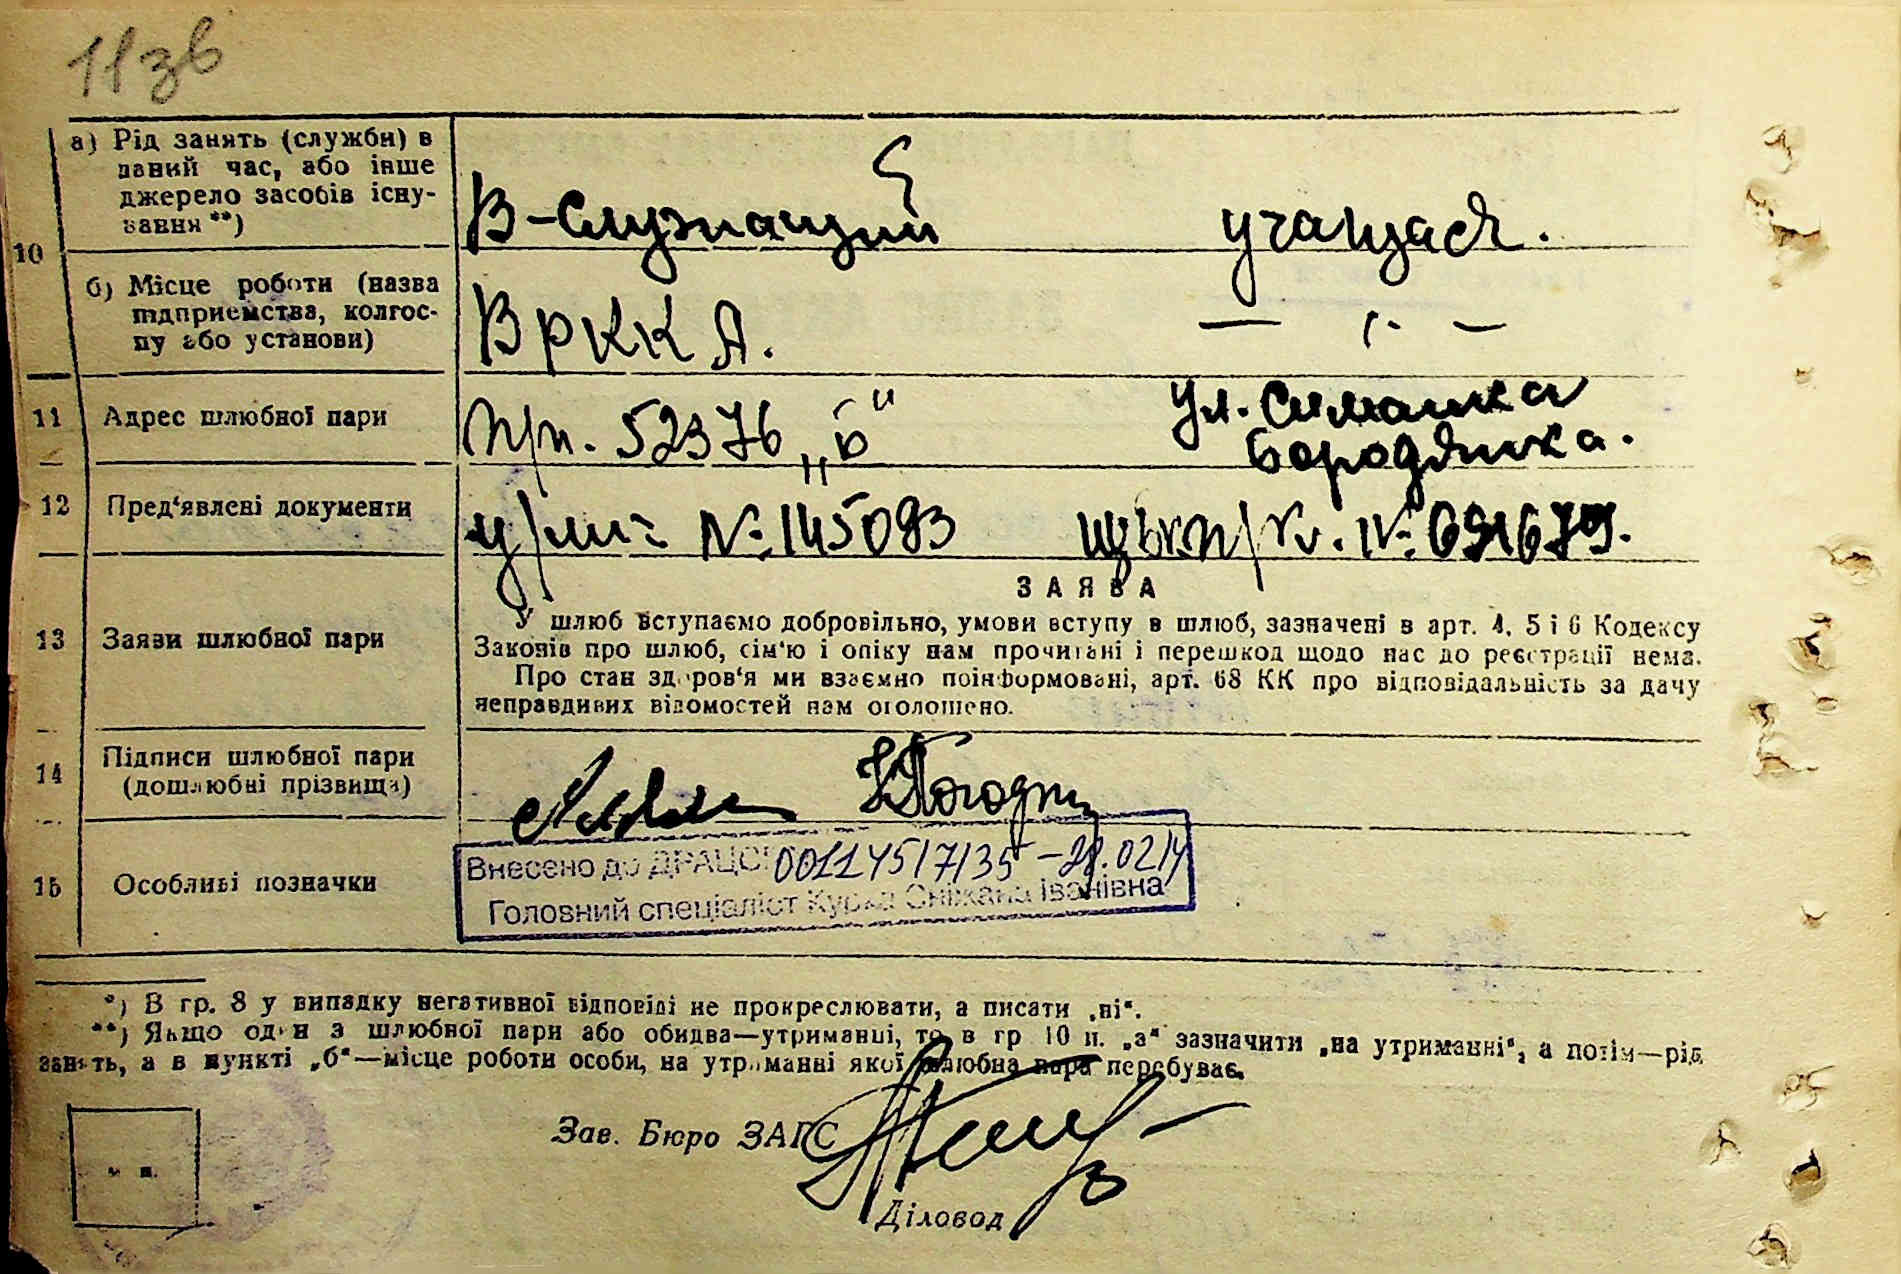 11зв
10
а) Рід занять (служби) в
даний час, або інше
джерело засобів існу-
вання **)
В-Служащий
учащаяся.
б) Місце роботи (назва
підприємства, колгос-
пу або установи)
В РККА.
— " —
11
Адрес шлюбної пари
п/п. 52376 „б“
ул.
Бородянка.
12
Пред‘явлені документи
№ 145093
№ 691679.
13
Заяви шлюбної пари
ЗАЯВА
У шлюб вступаємо добровільно, умови вступу в шлюб, зазначені в арт. 4, 5 і 6 Кодексу
Законів про шлюб, сім‘ю і опіку нам прочитані і перешкод щодо нас до реєстрації нема.
Про стан здоров‘я ми взаємно поінформовані, арт. 68 КК про відповідальність за дачу
неправдивих відомостей нам оголошено.
14
Підписи шлюбної пари
(дошлюбні прізвища)
15
Особливі позначки
Внесено до ДРАЦСГ 00114517135 –
Головний спеціаліст Сніжана Іванівна
*) В гр. 8 у випадку негативної відповіді не прокреслювати, а писати „ні“.
**) Якщо один з шлюбної пари або обидва—утриманці, то в гр 10 п. „а“ зазначити „на утриманні“, а потім—рід
занять, а в пункті „б“—місце роботи особи, на утриманні якої шлюбна пара перебуває.
Зав. Бюро ЗАГС
м п.
Діловод